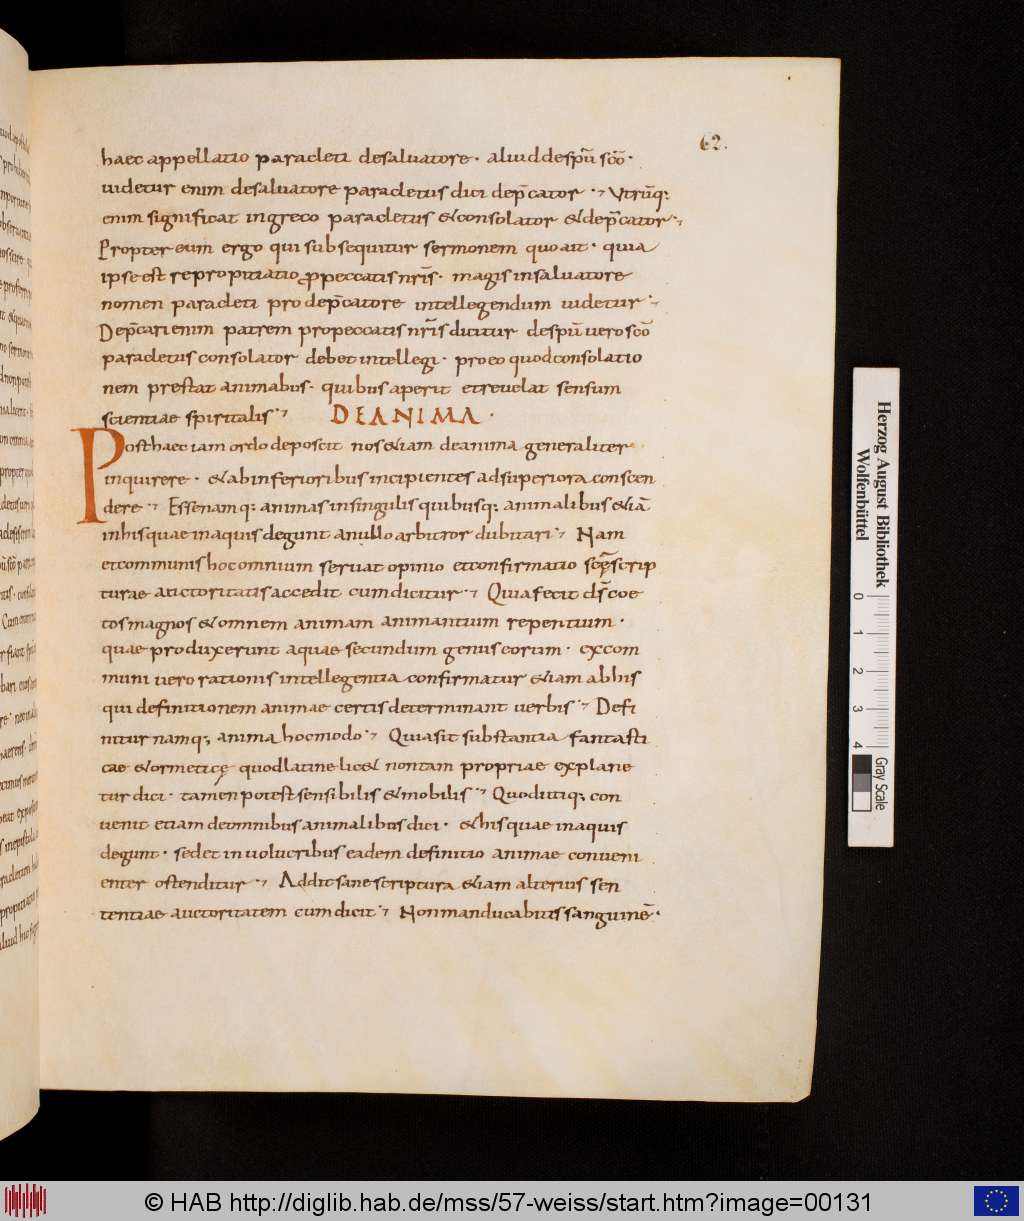 62.
haec appellatio paracleti desaluatore· aliud despũ sc̃o·
uidetur enim desaluatore paracletus dici dep̃cator· utrũq;
enim significat ingreco paracletus &consolator &dep̃cator·
Propter eum ergo qui subsequitur sermonem quo ait· quia
ipse est repropitiatio ꝓpeccatis nr̃is· magis insaluatore
nomen paracleti pro dep̃catore intellegendum uidetur
Dep̃cari enim patrem propeccatis nr̃is dicitur despũ uero sc̃o
paracletus consolator debet intellegi· proeo quodconsolatio
nem prestat animabus· quibus aperit etreuelat sensum
scientiae spiritalis DE ANIMA·
Posthaec iam ordo deposcit nos &iam deanima generaliter
inquirere· &abinferioribus incipientes adsuperiora conscen
dere Essenamq; animas insingulis quibusq; animalibus &iã
inhis quae inaquis degunt anullo arbitror dubitari Nam
etcommunis hoc omnium seruat opinio etconfirmatio sc̃ę scrip
turae auctoritatis accedit cum dicitur Quia fecit d̃s coe
tos magnos &omnem animam animantium repentium·
quae produxerunt aquae secundum genus eorum· excom
muni uero rationis intellegentia confirmatur &iam abhis
qui definitionem animae certis determinant uerbis Defi
nitur namq; anima hocmodo Quia sit substantia fantasti
cae &ormeticę quodlatine lic& nontam propriae explane
tur dici· tamen potest sensibilis &mobilis Quod utiq; con
uenit etiam deomnibus animalibus dici· &his quae inaquis
degunt· sedet inuolucribus eadem definitio animae conueni
enter ostenditur Addit sane scriptura &iam alterius sen
tentiae auctoritatem cum dicit Non manducabitis sanguinẽ·
Herzog August Bibliothek
Wolfenbüttel
0 1 2 3 4
Gray Scale
© HAB http://diglib.hab.de/mss/57-weiss/start.htm?image=00131